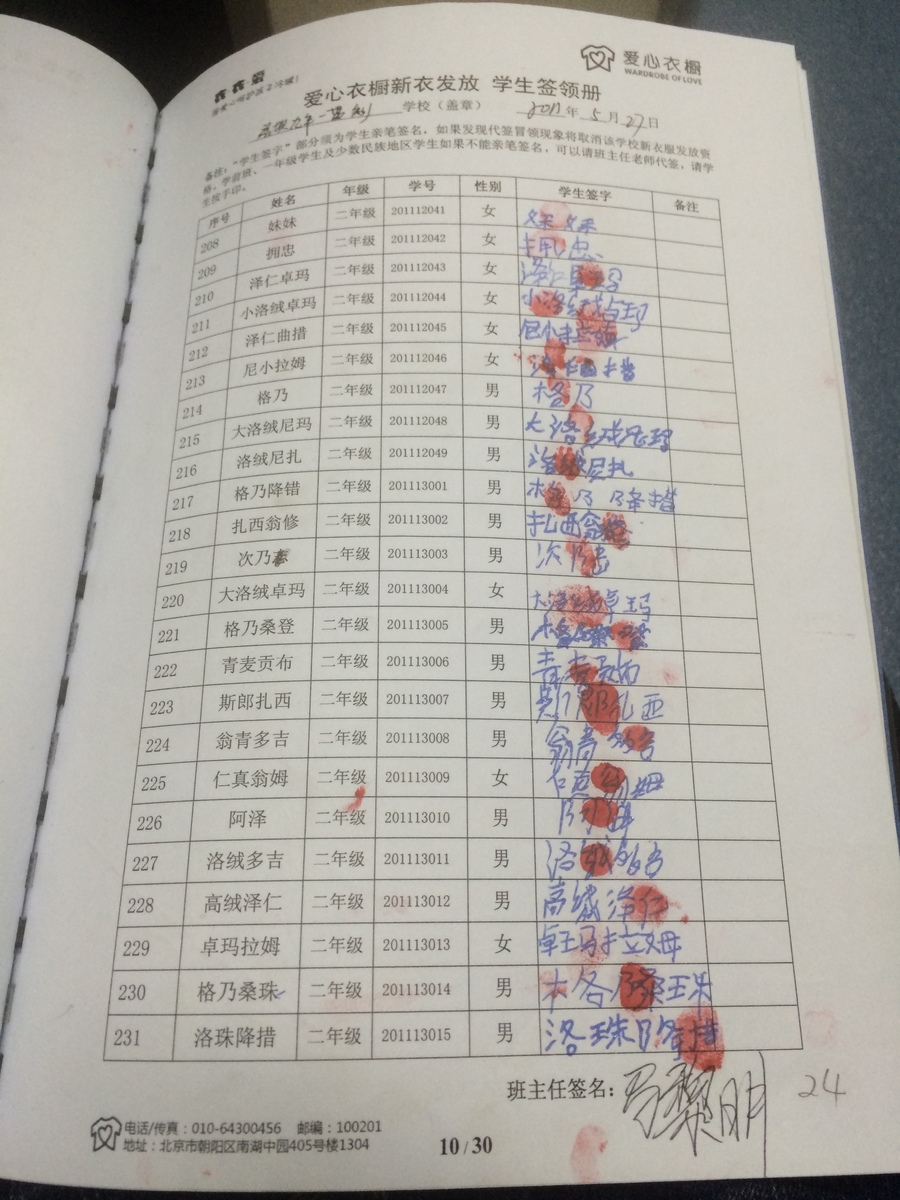 爱心衣橱
WARDROBE OF LOVE
爱心衣橱新衣发放 学生签领册
学校（盖章） 年5月27日
备注：“学生签字”部分须为学生亲笔签名，如果发现代签冒领现象将取消该学校新衣服发放资
格，学前班、一年级学生及少数民族地区学生如果不能亲笔签名，可以请班主任老师代签，请学
生按手印。
序号 姓名 年级 学号 性别 学生签字 备注
208 妹妹 二年级 201112041 女 妹妹
209 拥忠 二年级 201112042 女 拥忠
210 泽仁卓玛 二年级 201112043 女 泽仁卓玛
211 小洛绒卓玛 二年级 201112044 女 小洛绒卓玛
212 泽仁曲措 二年级 201112045 女
213 尼小拉姆 二年级 201112046 女
214 格乃 二年级 201112047 男 格乃
215 大洛绒尼玛 二年级 201112048 男 大洛绒尼玛
216 洛绒尼扎 二年级 201112049 男 洛绒尼扎
217 格乃降错 二年级 201113001 男 格乃降措
218 扎西翁修 二年级 201113002 男 扎西翁修
219 次乃 二年级 201113003 男 次乃
220 大洛绒卓玛 二年级 201113004 女 大洛绒卓玛
221 格乃桑登 二年级 201113005 男
222 青麦贡布 二年级 201113006 男 青麦贡布
223 斯郎扎西 二年级 201113007 男 斯郎扎西
224 翁青多吉 二年级 201113008 男 翁青多吉
225 仁真翁姆 二年级 201113009 女 仁真翁姆
226 阿泽 二年级 201113010 男 阿泽
227 洛绒多吉 二年级 201113011 男 洛绒多吉
228 高绒泽仁 二年级 201113012 男 高绒泽仁
229 卓玛拉姆 二年级 201113013 女 卓玛拉姆
230 格乃桑珠 二年级 201113014 男 格乃桑珠
231 洛珠降措 二年级 201113015 男 洛珠降措
班主任签名：
24
电话/传真：010-64300456 邮编：100201
地址：北京市朝阳区南湖中园405号楼1304
10/30